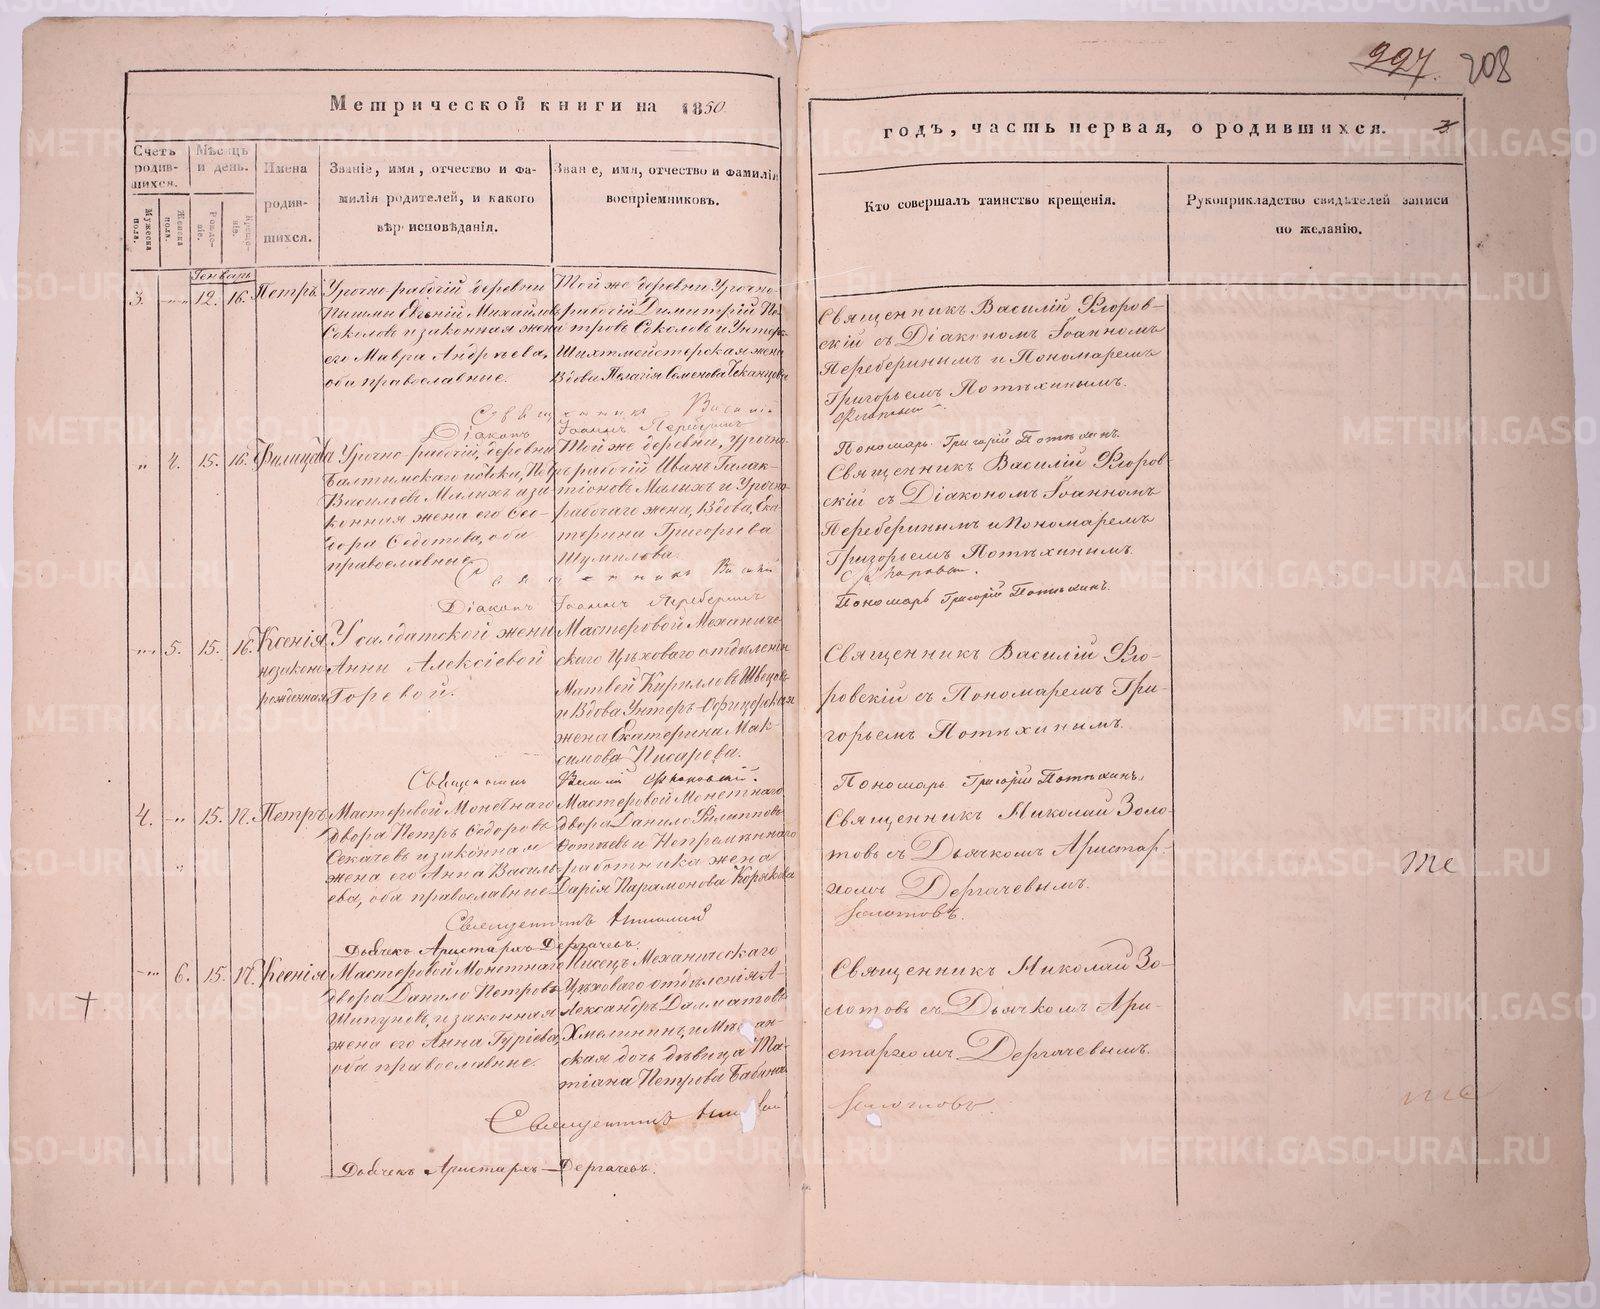 997. 208
Метрической книги на 1850
годъ, часть первая, о родившихся. 3
Счетъ родившихся.
Мужеска пола.
Женска пола.
Мѣсяцъ и день.
Рожденіе.
Крещеніе.
Имена родившихся.
Званіе, имя, отчество и фамилія родителей, и какого вѣроисповѣданія.
Званіе, имя, отчество и фамилія воспріемниковъ.
Кто совершалъ таинство крещенія.
Рукоприкладство свидѣтелей записи по желанію.
Генварь
3. 12. 16. Петръ
Урочно-рабочій деревни
Пышмы Евгеній Михайловъ
Соколовъ и законная жена
его Мавра Андреева,
оба православные.
Той же деревни Урочно-
рабочій Димитрій Пе-
тровъ Соколовъ и Унтеръ-
Шихтмейстерская жена
Вдова Пелагія Семенова Чеканцова
Священникъ Василій Флоров-
скій съ Діакономъ Іоанномъ
Переберинымъ и Пономаремъ
Григорьемъ Потѣхинымъ.
Священникъ Василій
Флоровскій.
Діаконъ Іоаннъ Переберинъ
Пономарь Григорій Потѣхинъ.
4. 15. 16. Филицата
Урочно-рабочій, деревни
Балтымскаго, Петръ
Васильевъ Малыхъ и за-
конная жена его Ѳео-
дора Ѳедотова, оба
православные.
Той же деревни, Урочно-
рабочій Иванъ Галак-
тіоновъ Малыхъ и Урочно-
рабочаго жена, Вдова, Ека-
терина Григорьева
Шумилова.
Священникъ Василій Флоров-
скій съ Діакономъ Іоанномъ
Переберинымъ и Пономаремъ
Григорьемъ Потѣхинымъ.
Священникъ Василій
Діаконъ Іоаннъ Переберинъ
Пономарь Григорій Потѣхинъ.
5. 15. 16. Ксенія
незаконно
рожденная
У солдатской жены
Анны Алексіевой
Горевой.
Мастеровой Механиче-
скаго Цѣховаго отдѣленія
Матвей Кирилловъ Швецовъ
и Вдова Унтеръ-Офицерская
жена Екатерина Мак-
симова Писарева.
Священникъ Василій Фло-
ровскій съ Пономаремъ Гри-
горьемъ Потѣхинымъ.
Священникъ Василій Флоровскій.
Пономарь Григорій Потѣхинъ.
4. 15. 17. Петръ
Мастеровой Монетнаго
двора Петръ Ѳедоровъ
Секачевъ и законная
жена его Анна Василь-
ева, оба православные
Мастеровой Монетнаго
двора Данило Филипповъ
и Непремѣннаго
работника жена
Дарія Парамонова Корякова
Священникъ Николай Золо-
товъ съ Дьячкомъ Аристар-
хомъ Дергачевымъ.
те
Священникъ Николай
Золотовъ.
Дьячекъ Аристархъ Дергачевъ.
6. 15. 17. Ксенія
Мастеровой Монетнаго
двора Данило Петровъ
Шипуновъ, и законная
жена его Анна Гуріева,
оба православные.
Писецъ Механическаго
Цѣховаго отдѣленія А-
лександръ Далматовъ
Хмелининъ, и Мѣщан-
ская дочь дѣвица Та-
тіана Петрова Бабина
Священникъ Николай Зо-
лотовъ съ Дьячкомъ Ари-
стархомъ Дергачевымъ.
Священникъ Николай
Золотовъ.
те
Дьячекъ Аристархъ Дергачевъ.
METRIKI.GASO-URAL.RU